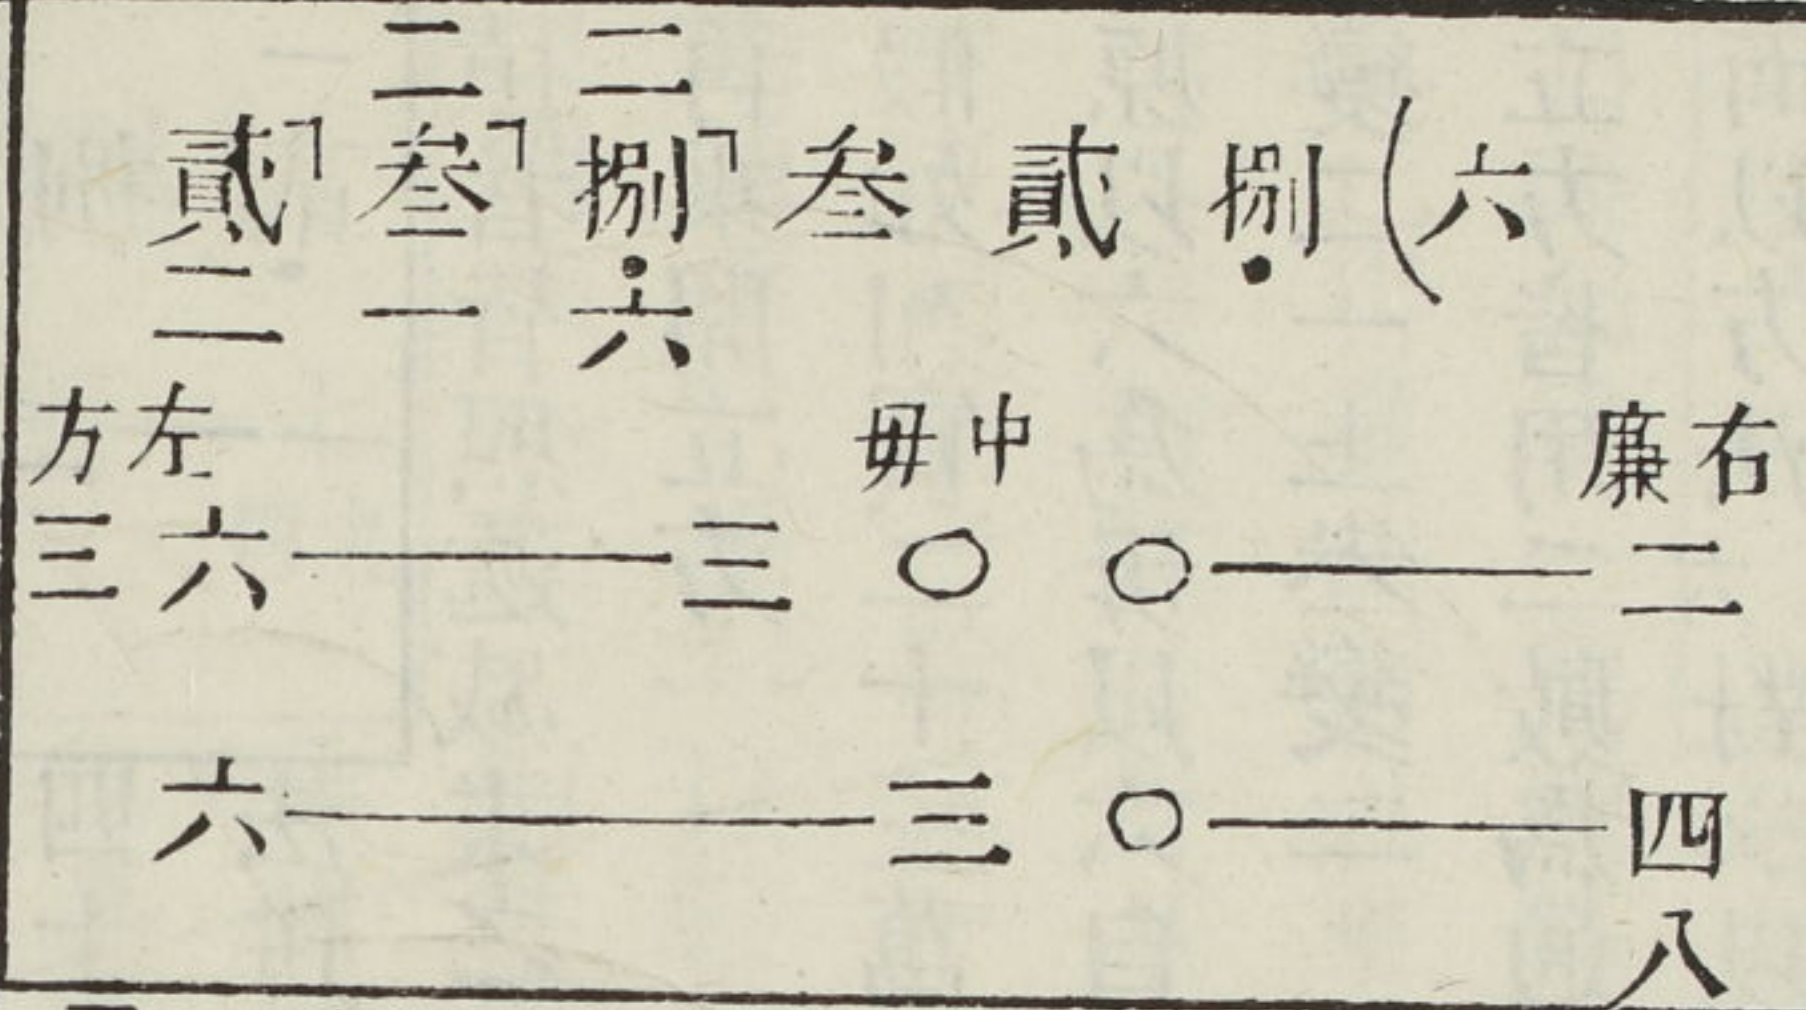 二 二
貳 叁 捌 叁 貳 捌 ( 六
二 一 六
左方 中毋 右廉
三 六——三 ○ ○——二
六——三 ○——四
八